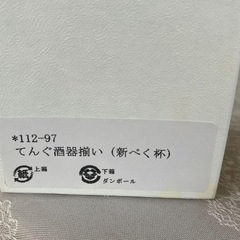 *112-97
てんぐ酒器揃い（新べく杯）
紙 上箱 下箱
ダンボール